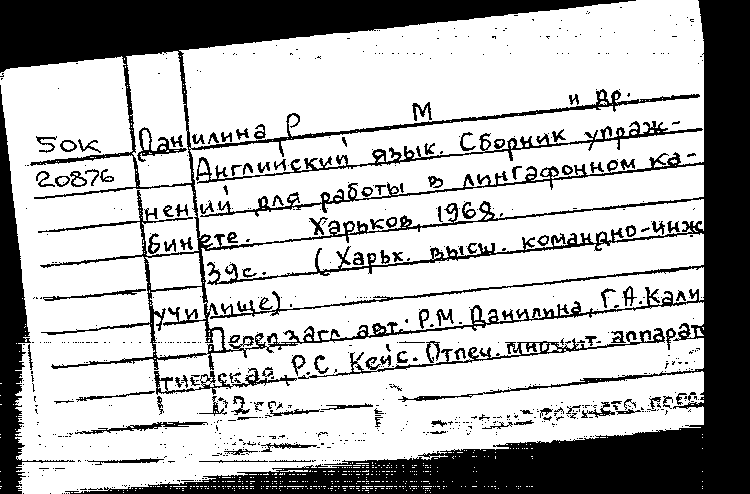 50к Данилина Р М и др.
20876 Английский язык. Сборник упраж-
нений для работы в лингафонном ка-
бинете. Харьков, 1968.
39с. (Харьк. высш. командно-инж
училище).
Перед загл. авт.: Р.М. Данилина, Г.А. Кали
Р.С. Кейс. Отпеч. множит. аппарат